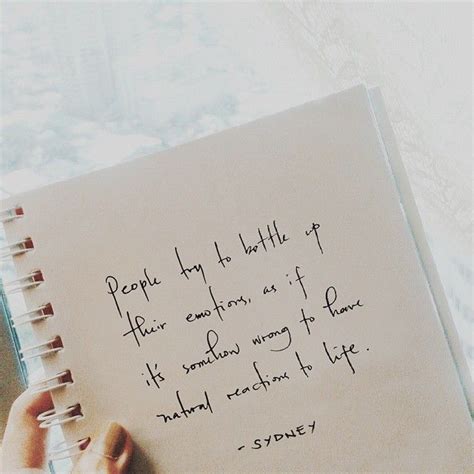 People try to bottle up
their emotions, as if
it's somehow wrong to have
natural reactions to life.
- SYDNEY